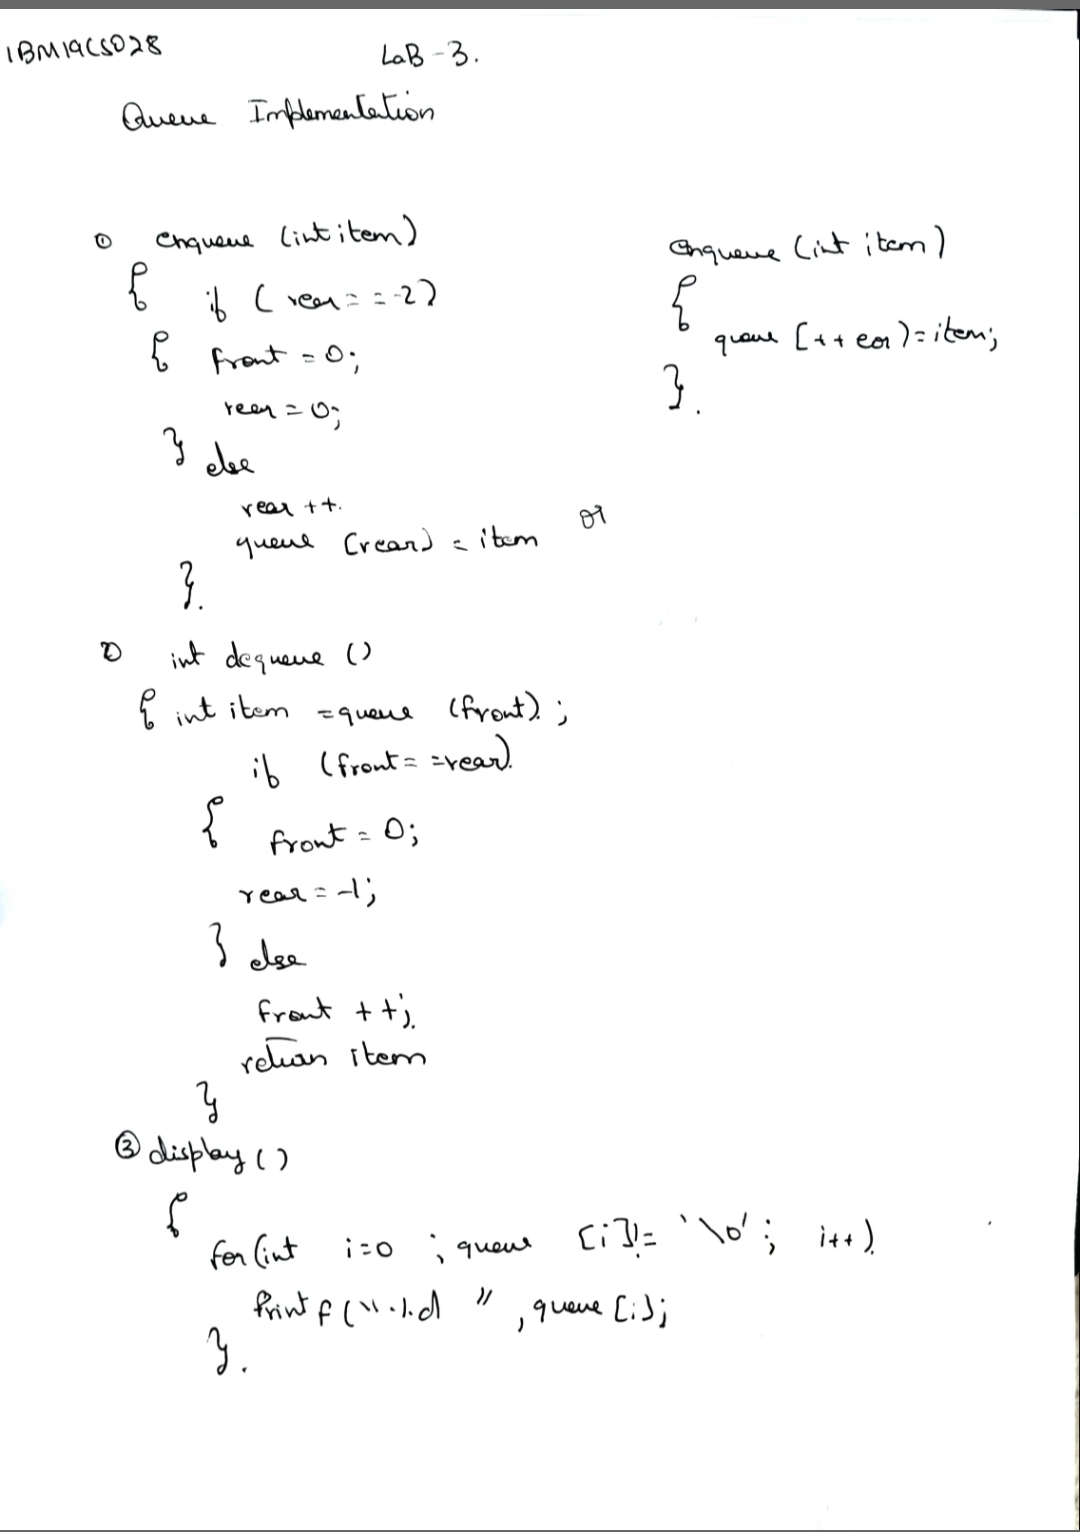 1BM19CS028
LaB-3.
Queue Implementation
① enqueue (int item)
{ if ( rear = = -2)
{ front = 0;
rear = 0;
} else
rear ++.
queue [rear] = item or
}.
enqueue (int item)
{
queue [++ ear] = item;
}.
② int dequeue ()
{ int item = queue (front). ;
if (front = = rear).
{ front = 0;
rear = -1;
} else
front ++;.
return item
}
③ display ()
{
for (int i=0 ; queue [i] != '\0' ; i++).
Printf ("%d " , queue [i];
}.